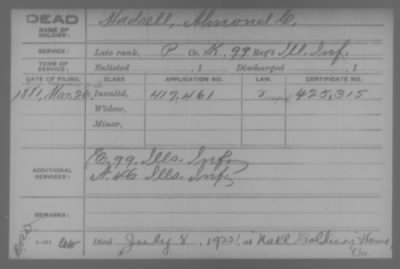 DEAD
NAME OF SOLDIER:
Hadsell, Almond C.
SERVICE:
Late rank, P Co. K, 99 Reg't Ill. Inf.
TERM OF SERVICE:
Enlisted , 1 Discharged , 1
DATE OF FILING. CLASS APPLICATION NO. LAW. CERTIFICATE NO.
1881, Mar. Invalid, 417,461 425,315
Widow,
Minor,
ADDITIONAL SERVICES:
E, 99. Ills. Inf.
A. 46 Ills. Inf.
REMARKS:
Died July 8, 1922, at Natl Soldiers Home,